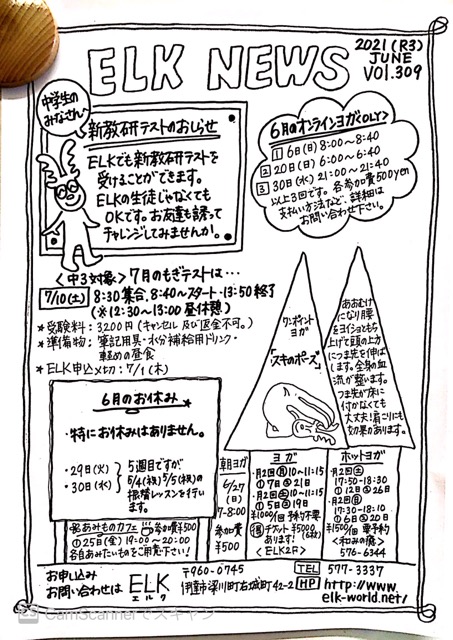 ELK NEWS
2021(R3)
JUNE
VOl.309
中学生の
みなさん〜
新教研テストのおしらせ
ELKでも新教研テストを
受けることができます。
ELKの生徒じゃなくても
OKです。お友達も誘って
チャレンジしてみませんか。
6月のオンラインヨガ<OLY>
① 6日(日) 8:00〜8:40
② 20日(日) 6:00〜6:40
③ 30日(水) 21:00〜21:40
以上3回です。各参加費500yen
支払い方法など、詳細は
お問い合わせ下さい。
<中3対象> 7月のもぎテストは…
7/10(土) 8:30集合、8:40〜スタート・13:50終了
(※12:30〜13:00昼休憩)
*受験料: 3200円(キャンセル及び返金不可。)
*準備物: 筆記用具・水分補給用ドリンク・
軽めの昼食
*ELK申込〆切: 7/1(木)
ワンポイント
ヨガ
「スキのポーズ」
あおむけ
になり腰
をヨイショともち
上げて頭の上方
につま先を伸ば
します。全身の血
流が整います。
つま先が床に
付かなくても
大丈夫!肩こりにも
効果があります。
6月のお休み
・特にお休みはありません。
・29日(火)
・30日(水)
5週目ですが
5/4(祝)5/5(祝)の
振替レッスンを行い
ます。
あみものカフェ 参加費¥500
①25日(金) 19:00〜20:00
各自あみたいものをご用意下さい!
朝ヨガ
6/27
(日)
7-8:00
参加費
¥500
ヨガ
・月2回(月)10-11:15
①7日②21日
・月2回(土)10-11:15
①5日②19日
¥1000/1回 予約不要
チケット
あります! ¥5000(6枚)
<ELK2F>
ホットヨガ
・月2回(土)
17:50-18:30
①12日②26日
・月2回(日)
17:30-18:10
①6日②20日
¥1500/1回 要予約
<和みの湯>
576-6344
お申込み
お問い合わせは ELK
エルク
〒960-0745
伊達市梁川町右城町42-2
TEL 577-3337
HP http://www.
elk-world.net/
CamScannerでスキャン